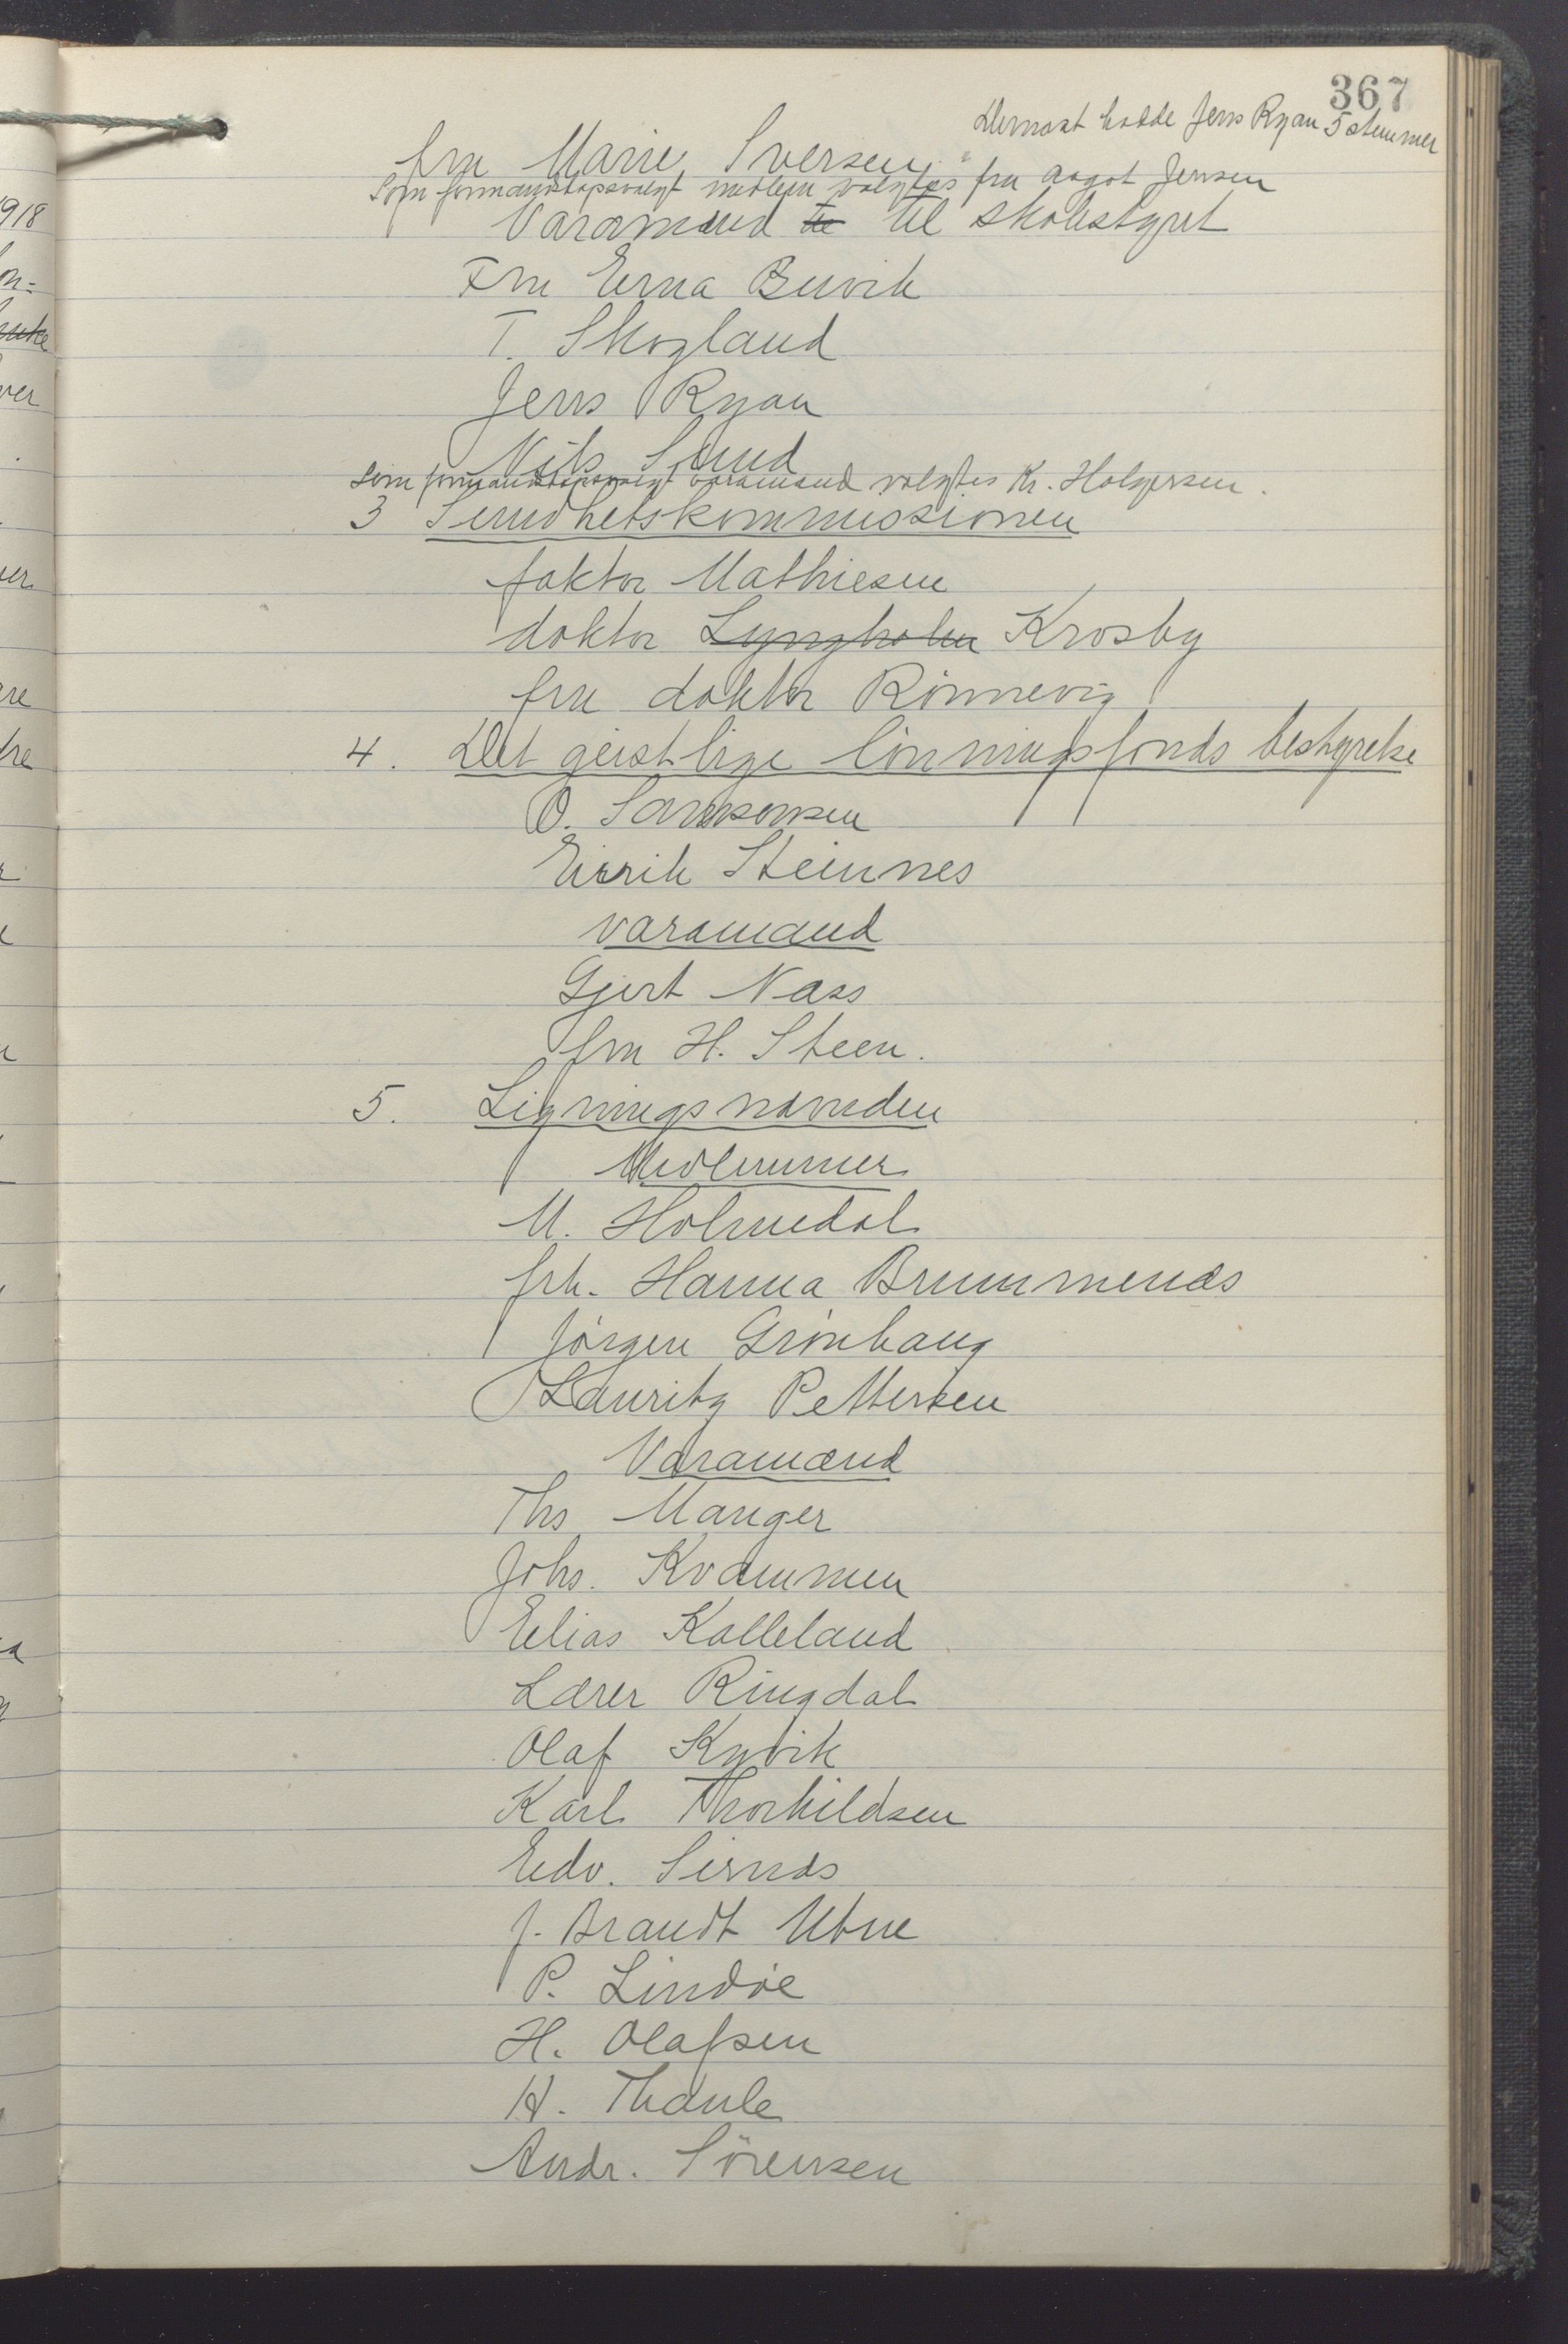 367
Dernæst hadde Jens Ryan 5 stemmer
fru Marie Iversen
Som formandskapsvalgt medlem valgtes fru Aagot Jensen
Varamænd te til skolestyret
Fru Erna Buvik
T. Skogland
Jens Ryan
Nils Sund
Som formandskapsvalgt varamand valgtes Kr. Holgersen.
3 Sundhetskommissionen
faktor Mathiesen
doktor Lyngholm Krosby
fru doktor Rönnevig
4. Det geistlige lönningsfonds bestyrelse
O. Samsonsen
Eirik Steinnes
varamænd
Gjert Næss
fru H. Steen.
5. Ligningsnævnden
Medlemmer
M. Holmedal
frk. Hanna Brummenæs
Jörgen Grönhaug
Lauritz Pettersen
Varamænd
Ths Manger
Johs. Kvammen
Elias Kalleland
Lærer Ringdal
Olaf Kyvik
Karl Thorkildsen
Edv. Sirnæs
J. Brandt Utne
P. Lindöe
H. Olafsen
H. Thaule
Andr. Sörensen